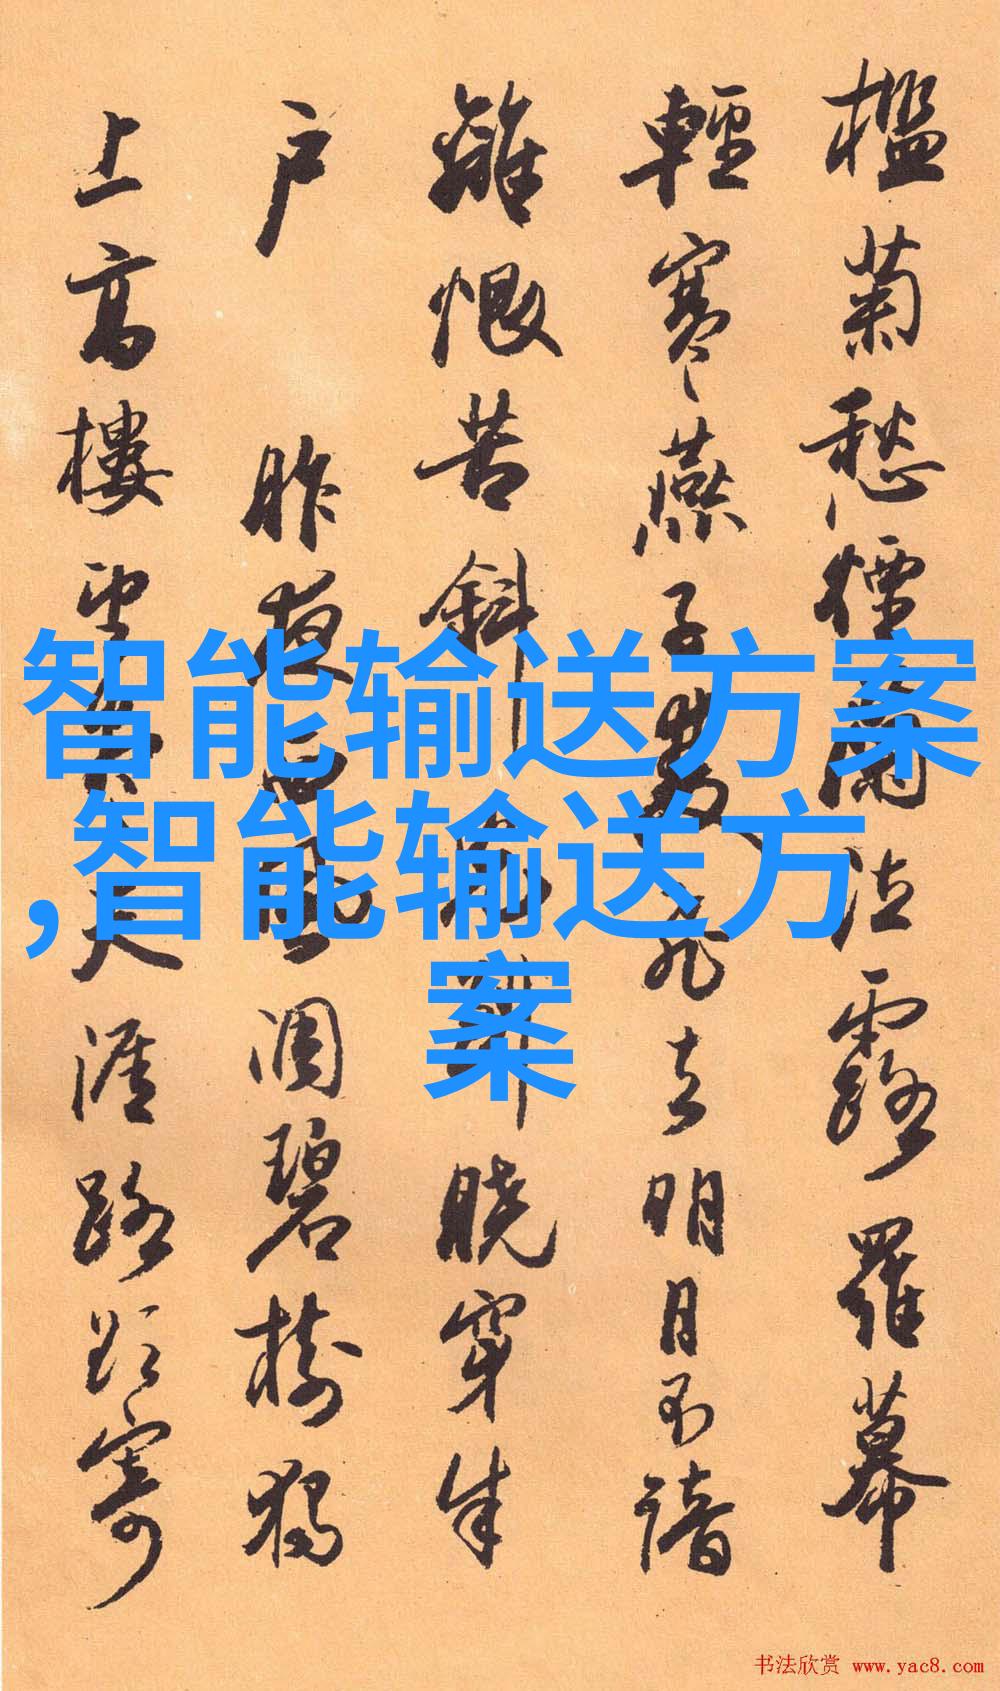 檻菊愁煙蘭泣露羅幕
輕寒燕子雙飛去明月不諳
離恨苦斜光到曉穿朱
户 昨夜西風凋碧樹獨
上高樓望盡天涯路欲寄
智能输送方案
,智能输送方
案
书法欣赏 www.yac8.com